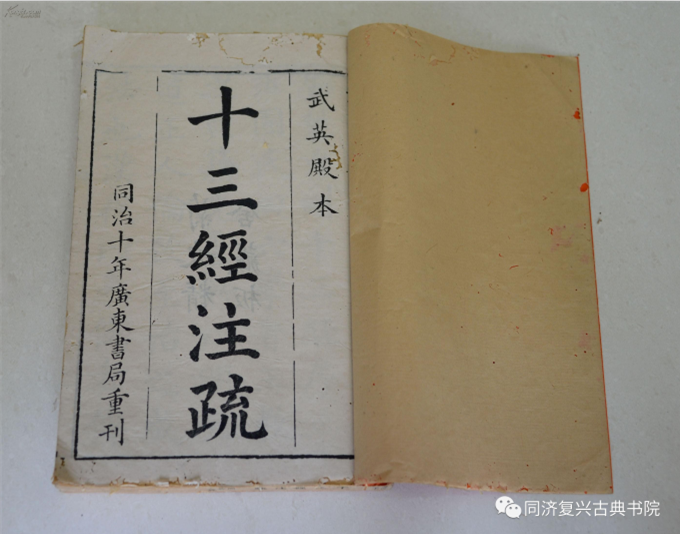 武英殿本
十三經注疏
同治十年廣東書局重刊
同济复兴古典书院